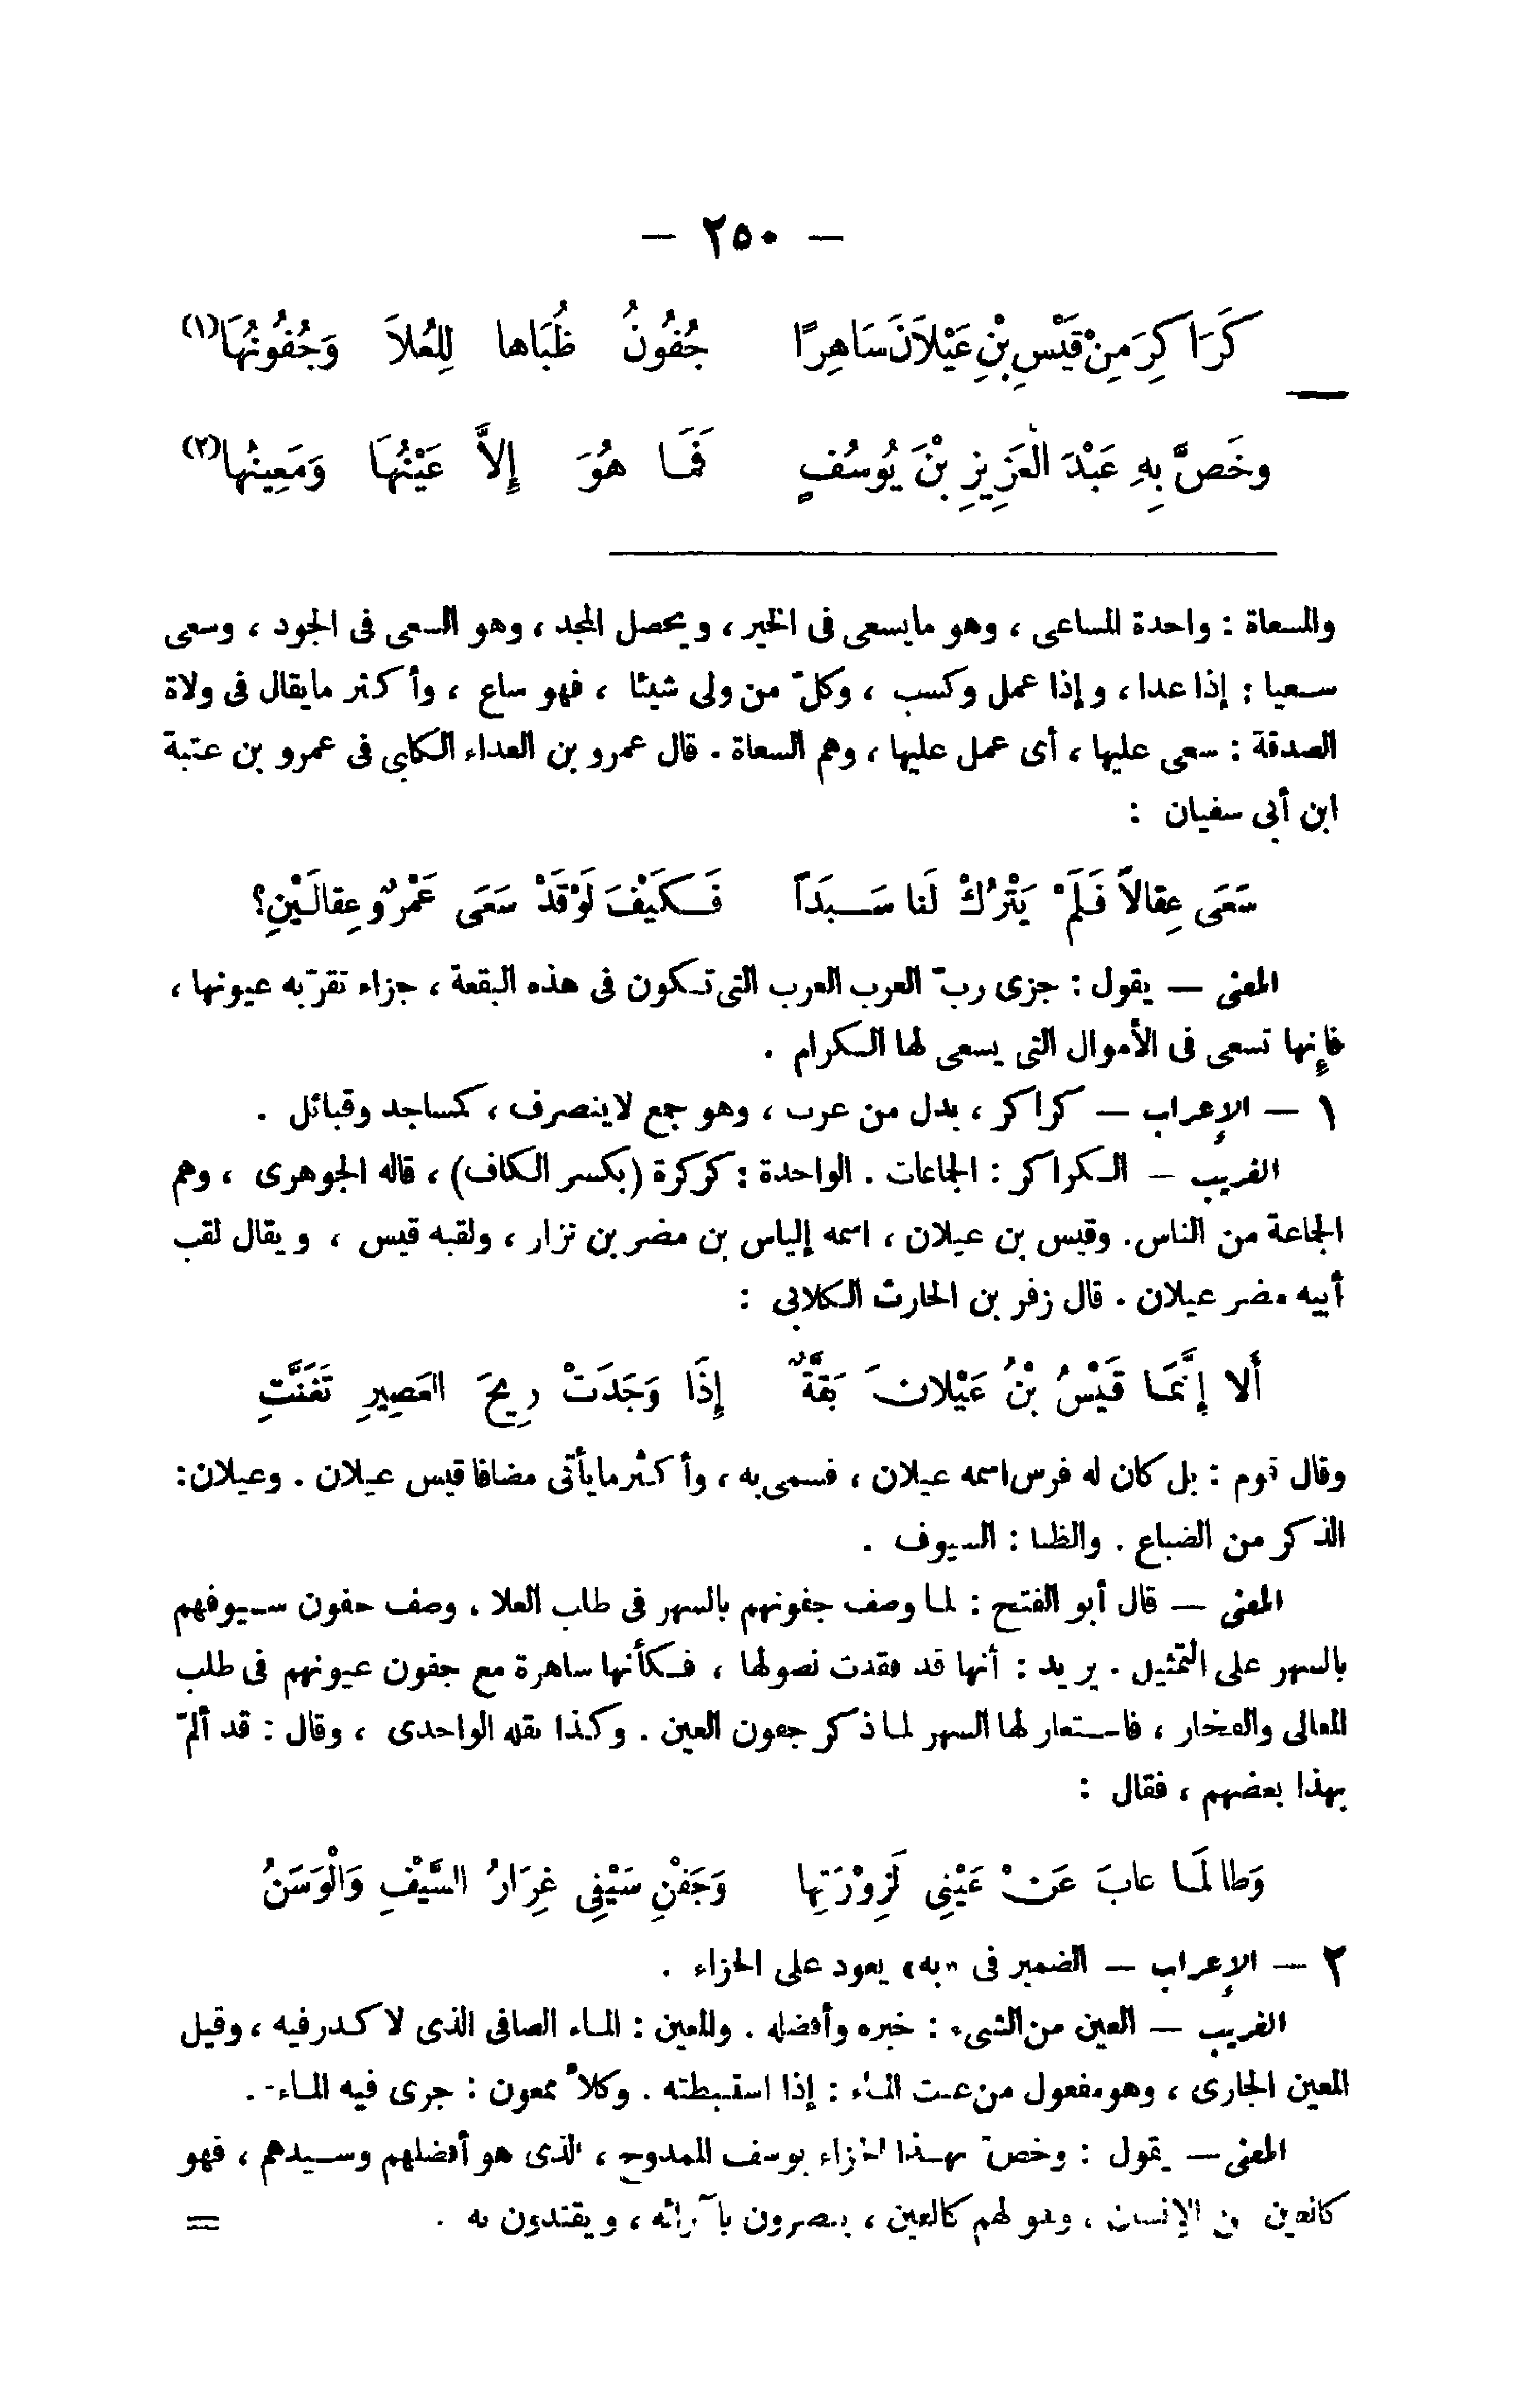 — ٢٥٠ —
كَرَاكِرَ مِنْ قَيْسِ بْنِ عَيْلَانَ سَاهِرًا جُفُونُ ظُبَاها لِلْعُلاَ وَجُفُونُهَا (١)
وخَصَّ بِهِ عَبْدَ الْعَزِيزِ بْنَ يُوسُفٍ فَمَا هُوَ إِلاَّ عَيْنُهَا وَمَعِينُها (٢)
والمسعاة : واحدة المساعى ، وهو مايسعى فى الخير ، ويحصل المجد ، وهو السعى فى الجود ، وسعى
سعيا : إذا عدا ، وإذا عمل وكسب ، وكلّ من ولى شيئا ، فهو ساع ، وأكثر مايقال فى ولاة
الصدقة : سعى عليها ، أى عمل عليها ، وهم السعاة . قال عمرو بن العداء الكلبى فى عمرو بن عتبة
ابن أبى سفيان :
سَعَى عِقالاً فَلَمْ يَتْرُكْ لَنا سَبَدَاً فَكَيْفَ لَوْقَدْ سَعَى عَمْرٌو عِقالَيْنِ؟
المعنى — يقول : جزى ربّ العرب العرب التى تكون فى هذه البقعة ، جزاء تقرّ به عيونها ،
فإنها تسعى فى الأموال التى يسعى لها الكرام .
١ — الإعراب — كراكر ، بدل من عرب ، وهو جمع لاينصرف ، كمساجد وقبائل .
الغريب — الكراكر : الجماعات . الواحدة : كركرة (بكسر الكاف) ، قاله الجوهرى ، وهم
الجماعة من الناس. وقيس بن عيلان ، اسمه إلياس بن مضر بن نزار ، ولقبه قيس ، ويقال لقب
أبيه مضر عيلان . قال زفر بن الحارث الكلابى :
أَلا إِنَّمَا قَيْسُ بْنُ عَيْلانَ بَقَّةٌ إِذَا وَجَدَتْ رِيحَ العَصِيرِ تَغَنَّتِ
وقال قوم : بل كان له فرس اسمه عيلان ، فسمى به ، وأكثر مايأتى مضافا قيس عيلان . وعيلان:
الذكر من الضباع . والظبا : السيوف .
المعنى — قال أبو الفتح : لما وصف جفونهم بالسهر فى طلب العلا ، وصف جفون سيوفهم
بالسهر على التمثيل . يريد : أنها قد فقدت نصولها ، فكأنها ساهرة مع جفون عيونهم فى طلب
المعالى والفخار ، فاستعار لها السهر لما ذكر جفون العين . وكذا نقله الواحدى ، وقال : قد ألمّ
بهذا بعضهم ، فقال :
وَطالَمَا عابَ عَنْ عَيْنِى لَزِوْرَتِها وَجَفْنِ سَيْفِى غِرَارُ السَّيْفِ وَالْوَسَنُ
٢ — الإعراب — الضمير فى «به» يعود على الجزاء .
الغريب — العين من الشىء : خيره وأفضله . والمعين : الماء الصافى الذى لاكدر فيه ، وقيل
المعين الجارى ، وهو مفعول من عنت الماء : إذا استنبطته . وكلأ ممعون : جرى فيه الماء .
المعنى — يقول : وخصّ بهذا الجزاء يوسف الممدوح ، الذى هو أفضلهم وسيدهم ، فهو
كالعين من الإنسان ، وهو لهم كالعين ، يبصرون بآرائه ، ويقتدون به . =